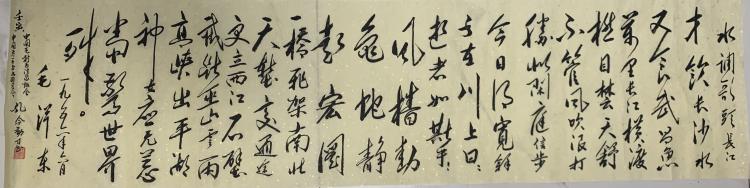 水调歌头 长江
才饮长沙水
又食武昌鱼
万里长江横渡
极目楚天舒
不管风吹浪打
胜似闲庭信步
今日得宽
子在川上曰：
逝者如斯
风樯动
龟蛇静
起宏图
一桥飞架南北
天堑变通途
更立西江石壁
截断巫山云雨
高峡出平湖
神女应无恙
当惊世界
殊。
一九五六年六月
毛泽东